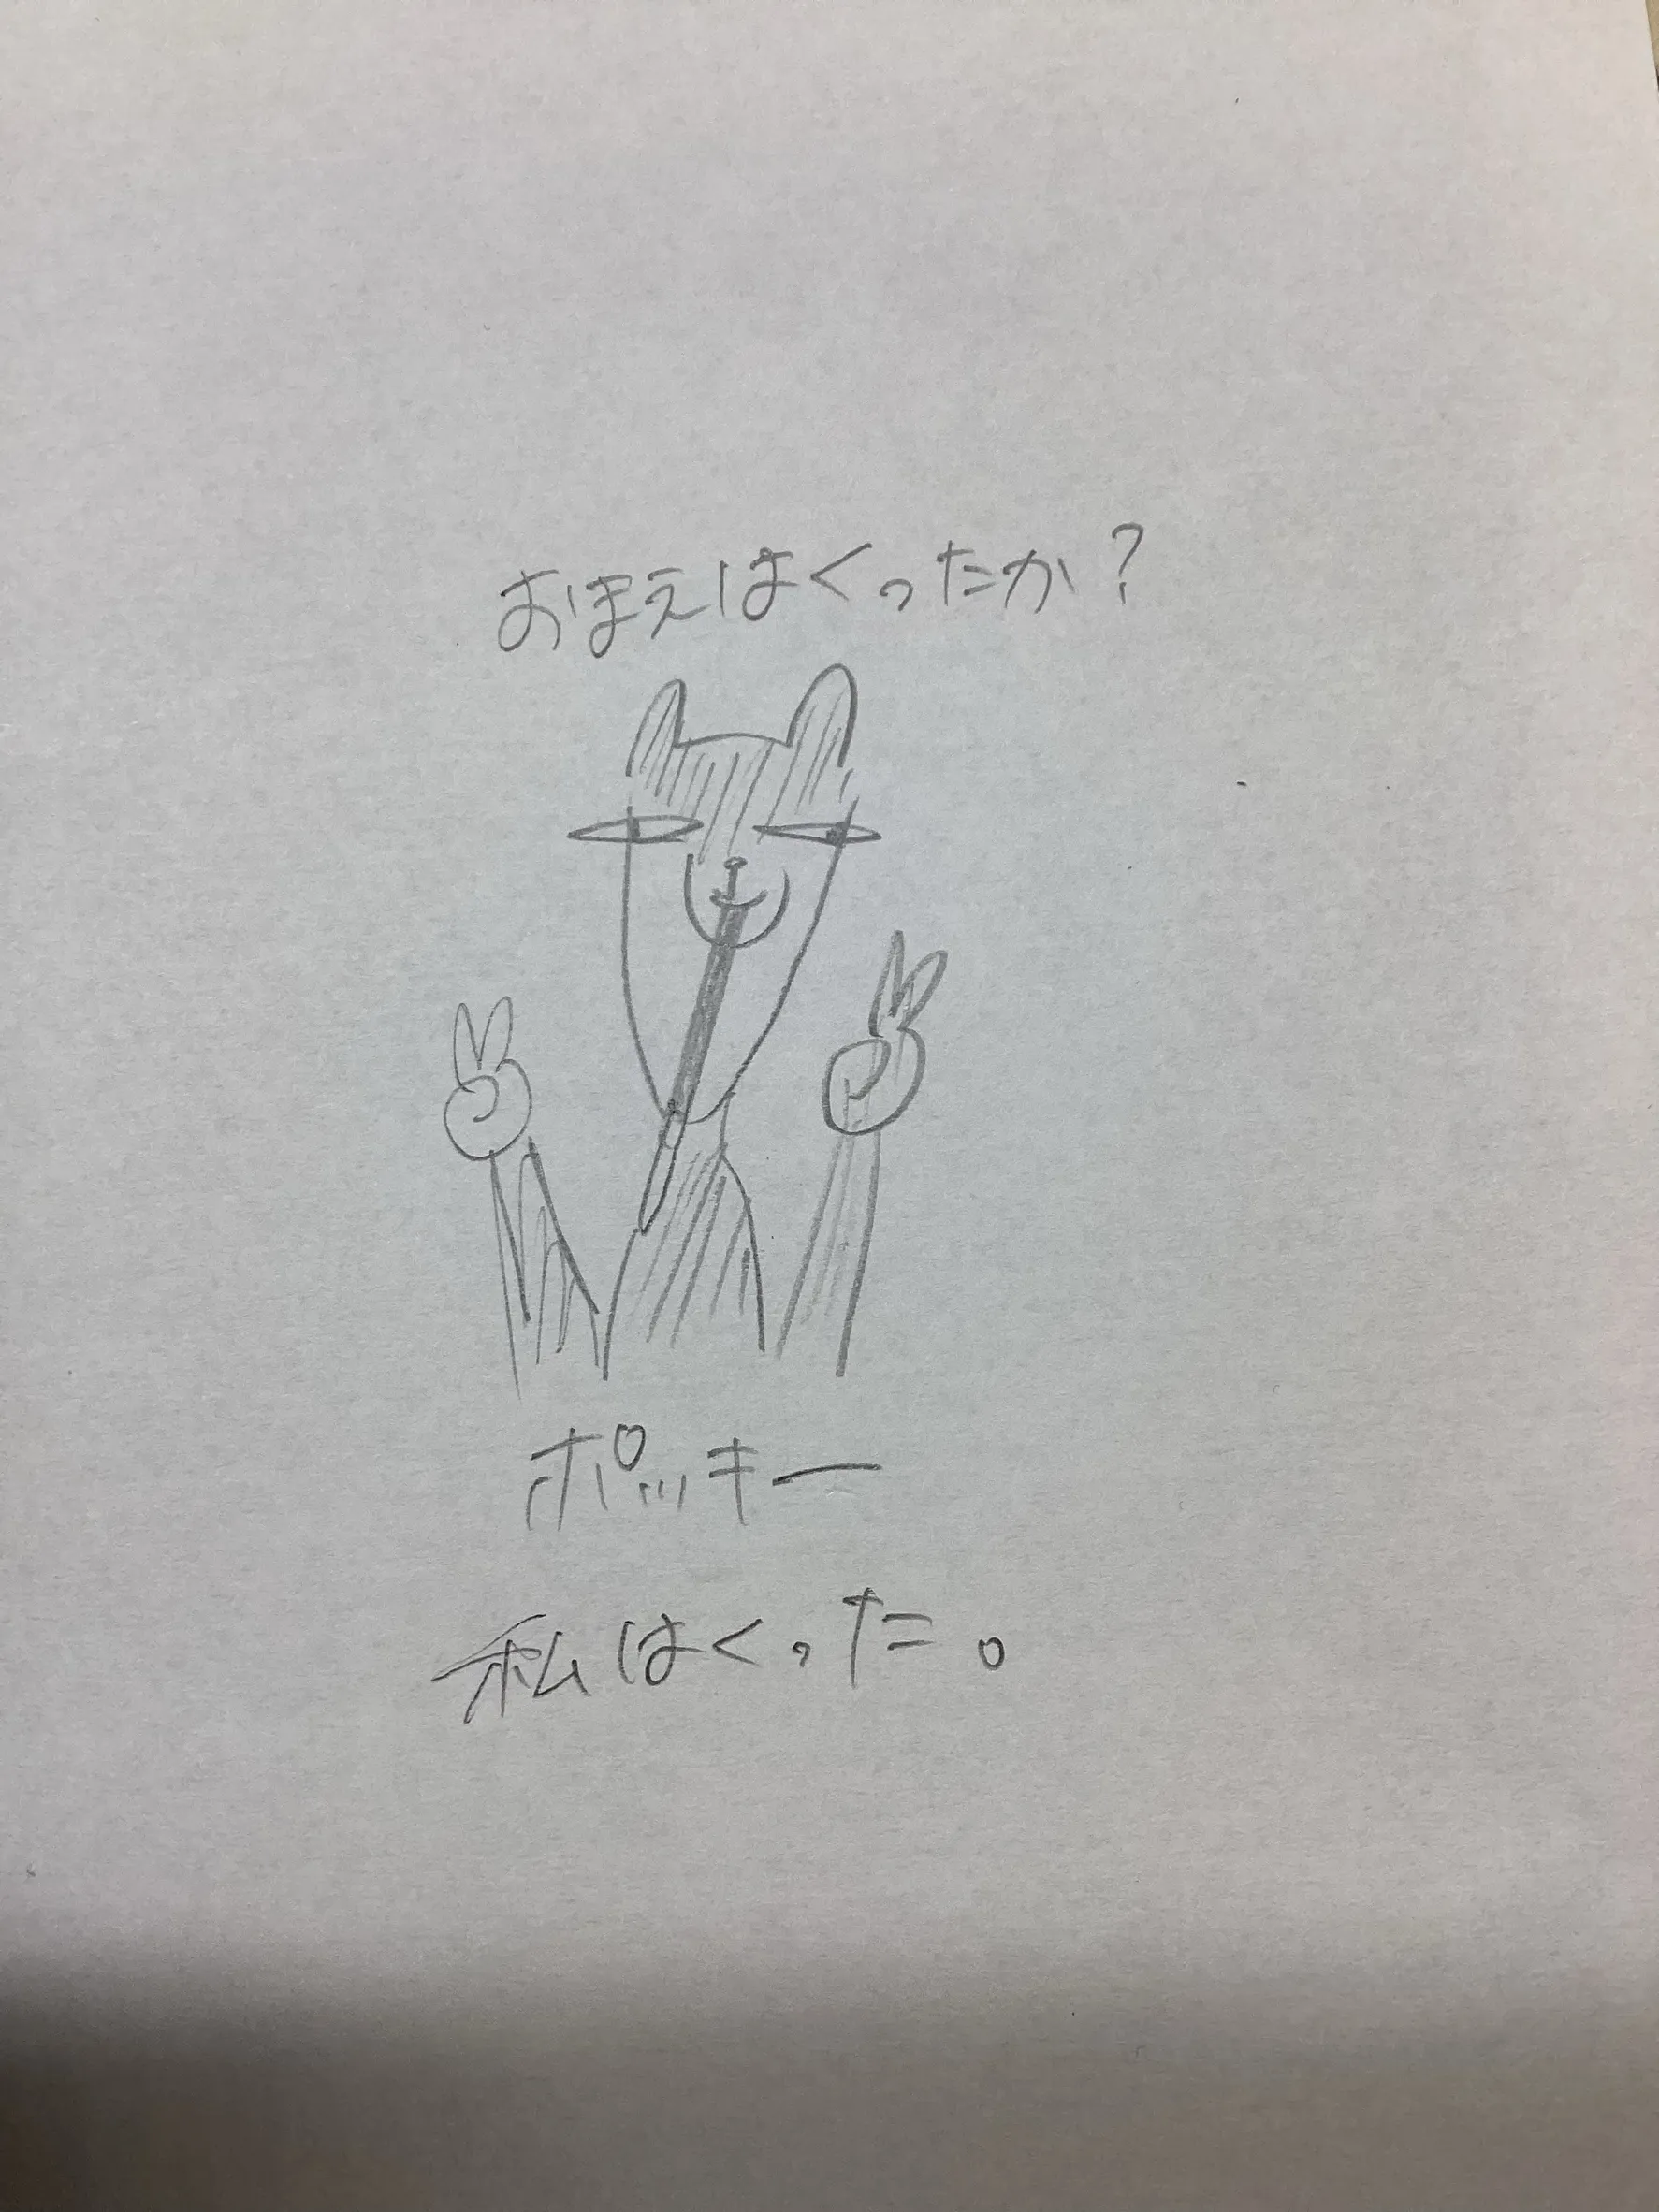 おまえはくったか?
ポッキー
私はくった。